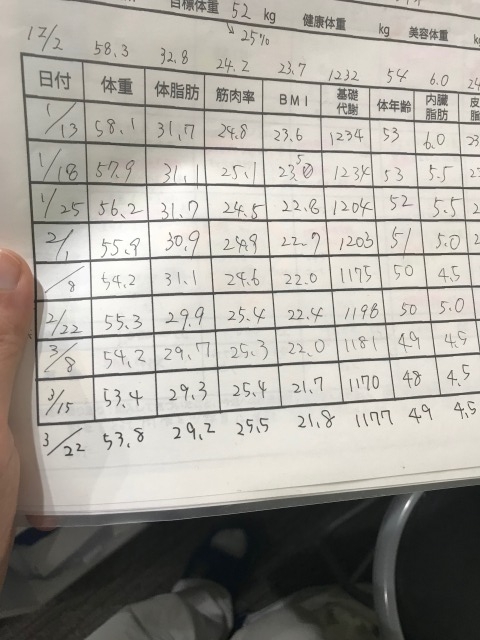 目標体重 52 kg 健康体重 kg 美容体重 kg
25%
12/2 58.3 32.8 24.2 23.7 1232 54 6.0
日付 体重 体脂肪 筋肉率 BMI 基礎代謝 体年齢 内臓脂肪
1/13 58.1 31.7 24.8 23.6 1234 53 6.0
1/18 57.9 31.1 25.1 23.5 1234 53 5.5
1/25 56.2 31.7 24.5 22.8 1204 52 5.5
2/1 55.9 30.9 24.9 22.7 1203 51 5.0
/8 54.2 31.1 24.6 22.0 1175 50 4.5
2/22 55.3 29.9 25.4 22.4 1198 50 5.0
3/8 54.2 29.7 25.3 22.0 1181 49 4.5
3/15 53.4 29.3 25.4 21.7 1170 48 4.5
3/22 53.8 29.2 25.5 21.8 1177 49 4.5